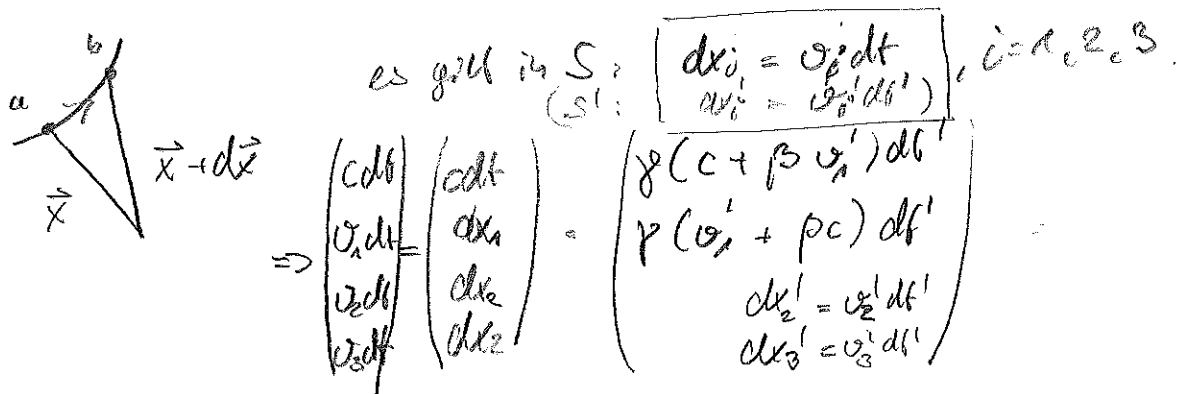 b
es gilt in S: dx_i = v_i dt, i=1,2,3
a
(S': dx_i' = v_i' dt')
x⃗ + dx⃗
x⃗
=> (cdt, v_1dt, v_2dt, v_3dt) = (cdt, dx_1, dx_2, dx_2) = (γ(c + βv_1')dt', γ(v_1' + βc)dt', dx_2' = v_2'dt', dx_3' = v_3'dt')